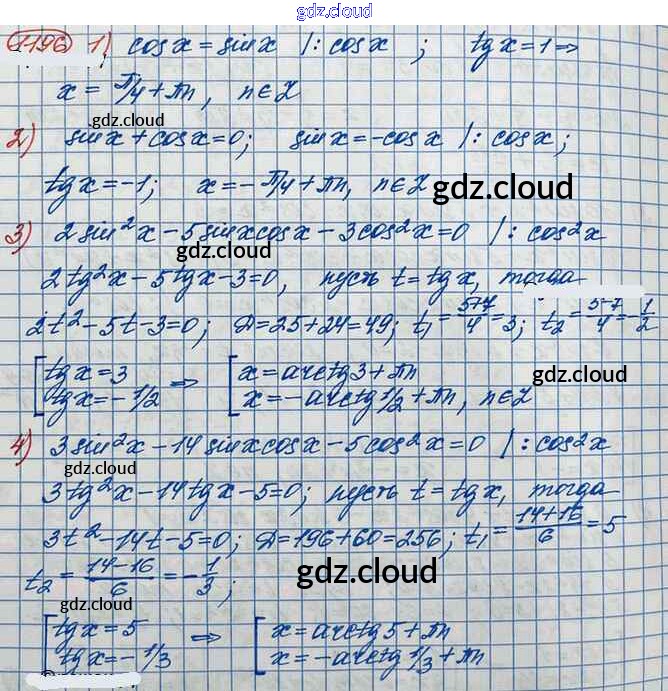 gdz.cloud
1196 1) cosx = sinx |: cosx ; tgx = 1 ⇒
gdz.cloud
x = π/4 + πn, n∈Z
gdz.cloud
2) sinx + cosx = 0; sinx = -cosx |: cosx;
tgx = -1; x = -π/4 + πn, n∈Z gdz.cloud
3) 2sin²x - 5sinxcosx - 3cos²x = 0 |: cos²x
gdz.cloud
2tg²x - 5tgx - 3 = 0, пусть t = tgx, тогда
gdz.cloud
2t² - 5t - 3 = 0; D = 25 + 24 = 49; t₁ = (5+7)/4 = 3; t₂ = (5-7)/4 = -1/2
[ tgx = 3 ⇒ [ x = arctg3 + πn
gdz.cloud
tgx = -1/2 x = -arctg1/2 + πn, n∈Z
4) 3sin²x - 14sinxcosx - 5cos²x = 0 |: cos²x
gdz.cloud
3tg²x - 14tgx - 5 = 0; пусть t = tgx, тогда
3t² - 14t - 5 = 0; D = 196 + 60 = 256; t₁ = (14+16)/6 = 5
t₂ = (14-16)/6 = -1/3; gdz.cloud
gdz.cloud
[ tgx = 5 ⇒ [ x = arctg5 + πn
tgx = -1/3 x = -arctg1/3 + πn